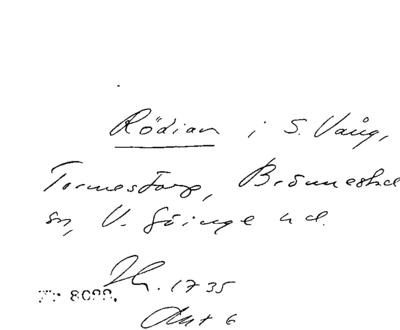 Rödian i S. Vång,
Tormestorp, Brönnestad
sn, V. Göinge hd.
1735